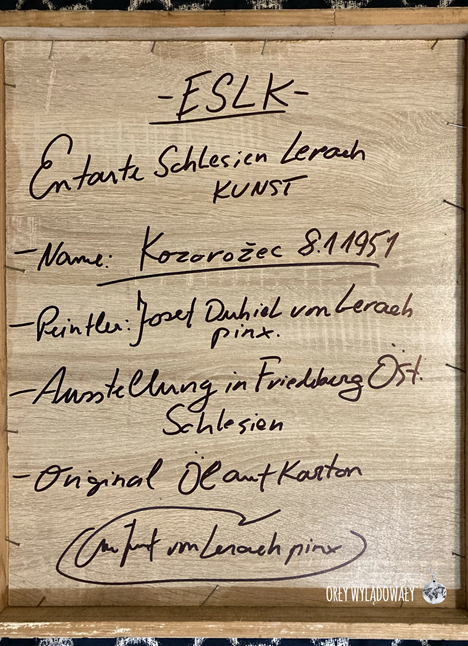 -ESLK-
Entarte Schlesien Lerach
KUNST
-Name: Kozorožec 8.1 1951
-Peintler: Josef Duhiel von Lerach
pinx.
-Ausstellung in Friedeberg Öst.
Schlesien
-Original Öl auf Karton
von Lerach pinx
ORŁY WYLĄDOWAŁY